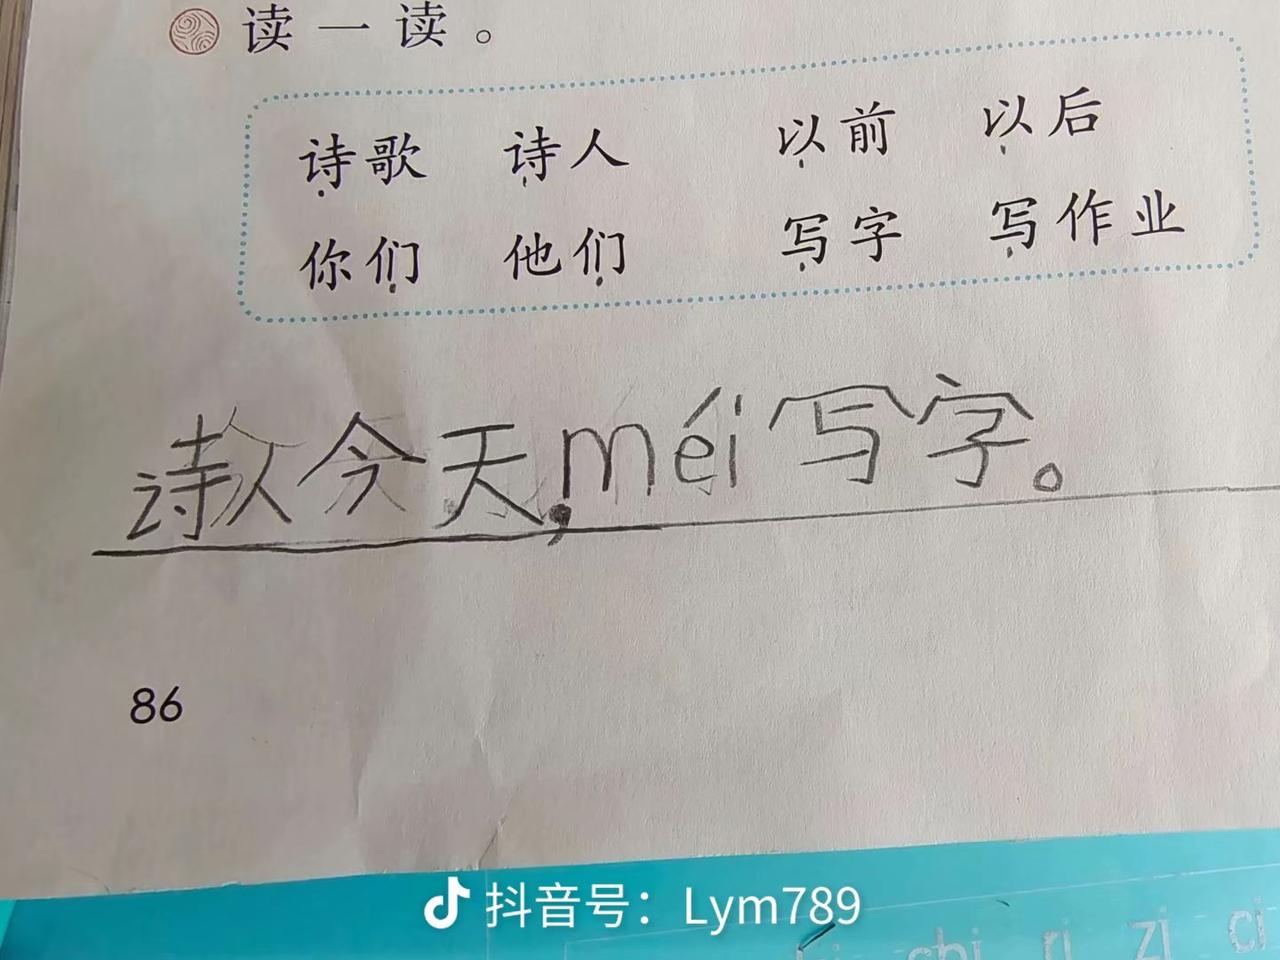 读一读。
诗歌 诗人 以前 以后
你们 他们 写字 写作业
诗人今天,méi写字。
86
抖音号：Lym789
shi ri zi ci